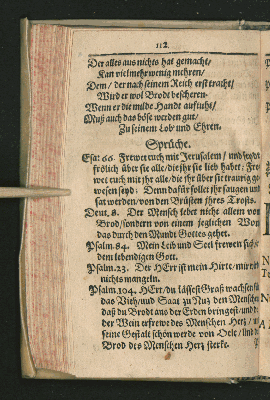 112.
Der alles aus nichts hat gemacht/
Kan viel mehr wenig mehren/
Dem/ der nach seinem Reich erst tracht/
Wird er wol Brodt bescheren.
Wenn er die milde Handt aufftuht/
Muß auch das böse werden gut/
Zu seinem Lob und Ehren.
Sprüche.
Esa: 66. Frewet euch mit Jerusalem/ und seydt
frölich über sie alle/ die jhr sie lieb habet: Fre-
wet euch mit jhr alle/ die jhr über sie traurig ge-
wesen seyd: Denn dafür sollet jhr saugen und
sat werden/ von den Brüsten jhres Trosts.
Deut. 8. Der Mensch lebet nicht allein vom
Brod/ sondern von einem jeglichen Wort
das durch den Mundt Gottes gehet.
Psalm. 84. Mein Leib und Seel frewen sich in
dem lebendigen Gott.
Psalm. 23. Der HErr ist mein Hirte/ mir wird
nichts mangeln.
Psalm. 104. HErr/ du lässest Graß wachsen für
das Vieh/ und Saat zu Nuz den Menschen
daß du Brodt aus der Erden bringest/ und der
der Wein erfrewe des Menschen Herz/
seine Gestalt schön werde von Oele/ und
Brod des Menschen Herz stercke.